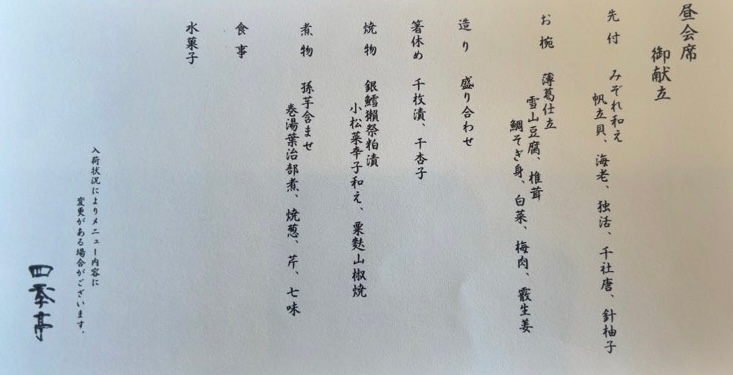 昼会席
御献立
先付 みぞれ和え
帆立貝、海老、独活、千社唐、針柚子
お椀 薄葛仕立
雪山豆腐、椎茸
鯛そぎ身、白菜、梅肉、霰生姜
造り 盛り合わせ
箸休め 千枚漬、干杏子
焼物 銀鱈獺祭粕漬
小松菜辛子和え、粟麩山椒焼
煮物 孫芋含ませ
巻湯葉治部煮、焼葱、芹、七味
食事
水菓子
入荷状況によりメニュー内容に
変更がある場合がございます。
四季亭